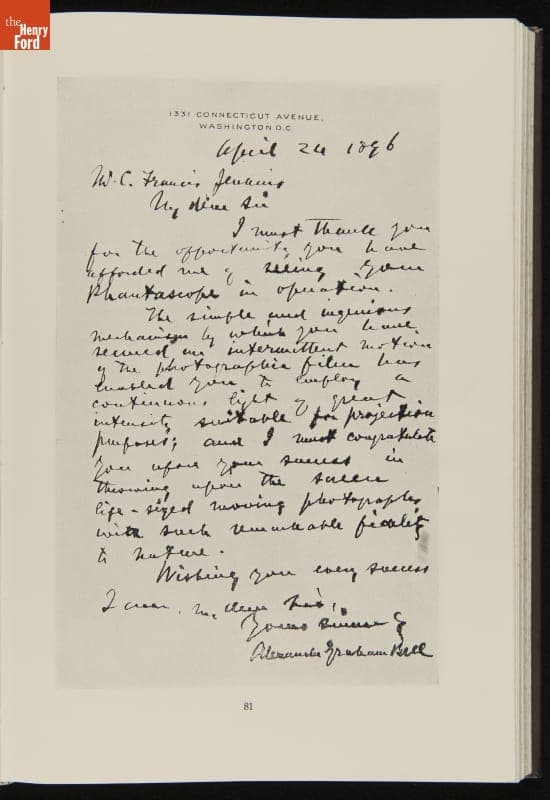 the
Henry
Ford
1331 CONNECTICUT AVENUE,
WASHINGTON D.C.
April 24 1896
Mr. C. Francis Jenkins
My dear Sir
I must thank you
for the opportunity you have
afforded me of seeing your
Phantascope in operation.
The simple and ingenious
mechanism by which you have
secured an intermittent motion
of the photographic film has
enabled you to employ a
continuous light of great
intensity suitable for projection
purposes; and I must congratulate
you upon your success in
throwing upon the screen
life-sized moving photographs
with such remarkable fidelity
to nature.
Wishing you every success
I am, my dear Sir,
Yours sincerely
Alexander Graham Bell
81